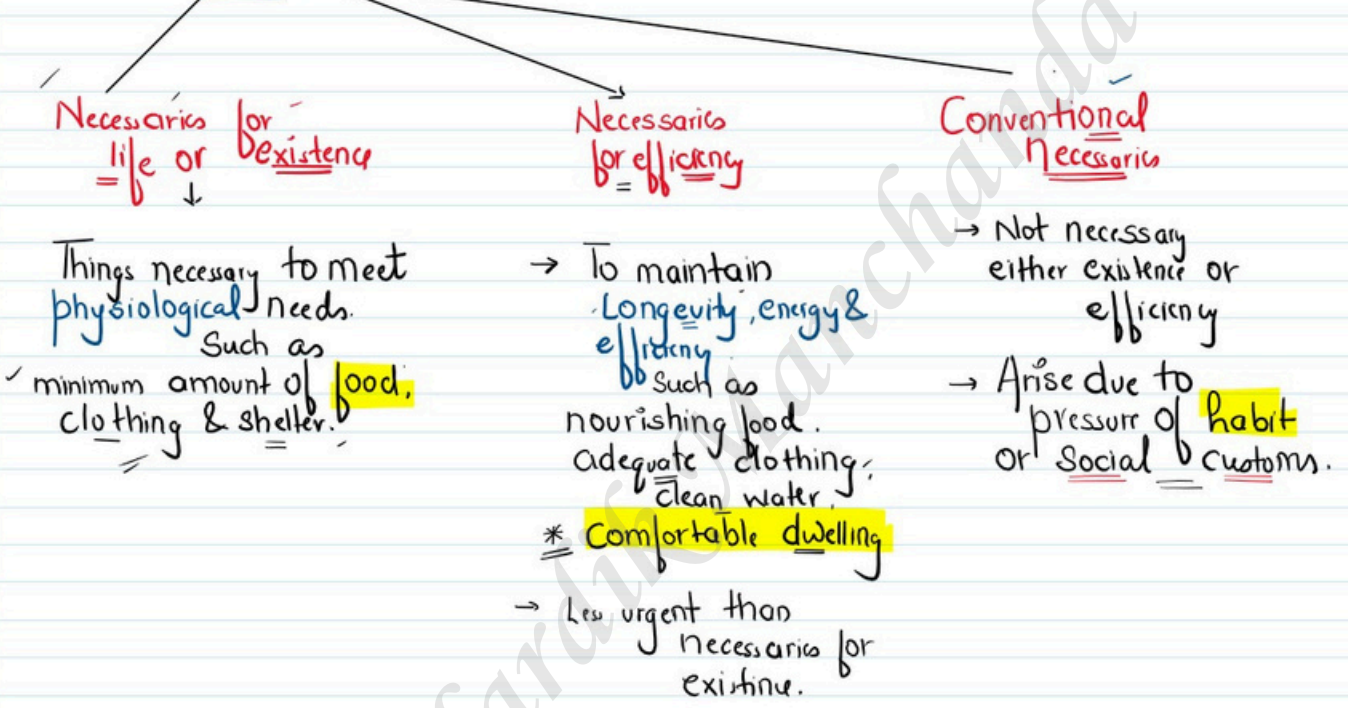 Necessaries for
life or existence
Things necessary to meet
physiological needs.
Such as
minimum amount of food,
clothing & shelter.
Necessaries
for efficiency
→ To maintain
Longevity, energy &
efficiency
Such as
nourishing food.
adequate clothing,
clean water,
* Comfortable dwelling
→ Less urgent than
necessaries for
existine.
Conventional
necessaries
→ Not necessary
either existence or
efficiency
→ Arise due to
pressure of habit
or social customs.
ardik Manchanda